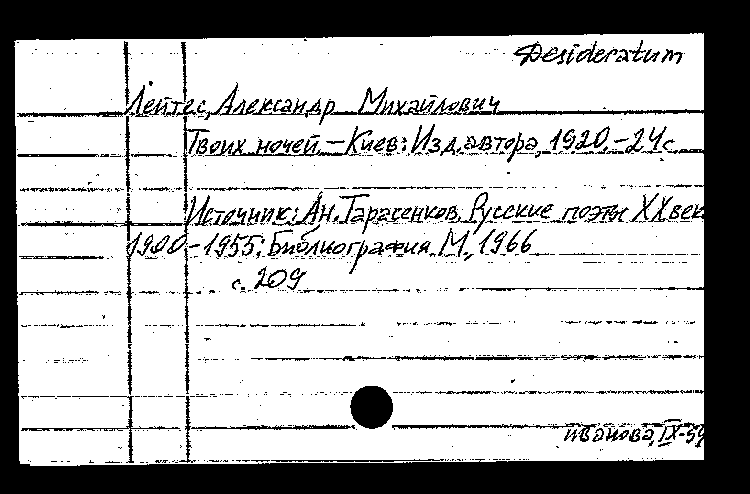 Desideratum
Лейтес, Александр Михайлович
Твоих ночей. – Киев: Изд. автора, 1920. – 24 с.
Источник: Ан. Тарасенков. Русские поэты XX век
1900–1955: Библиография. М., 1966
с. 209
Иванова, IX-